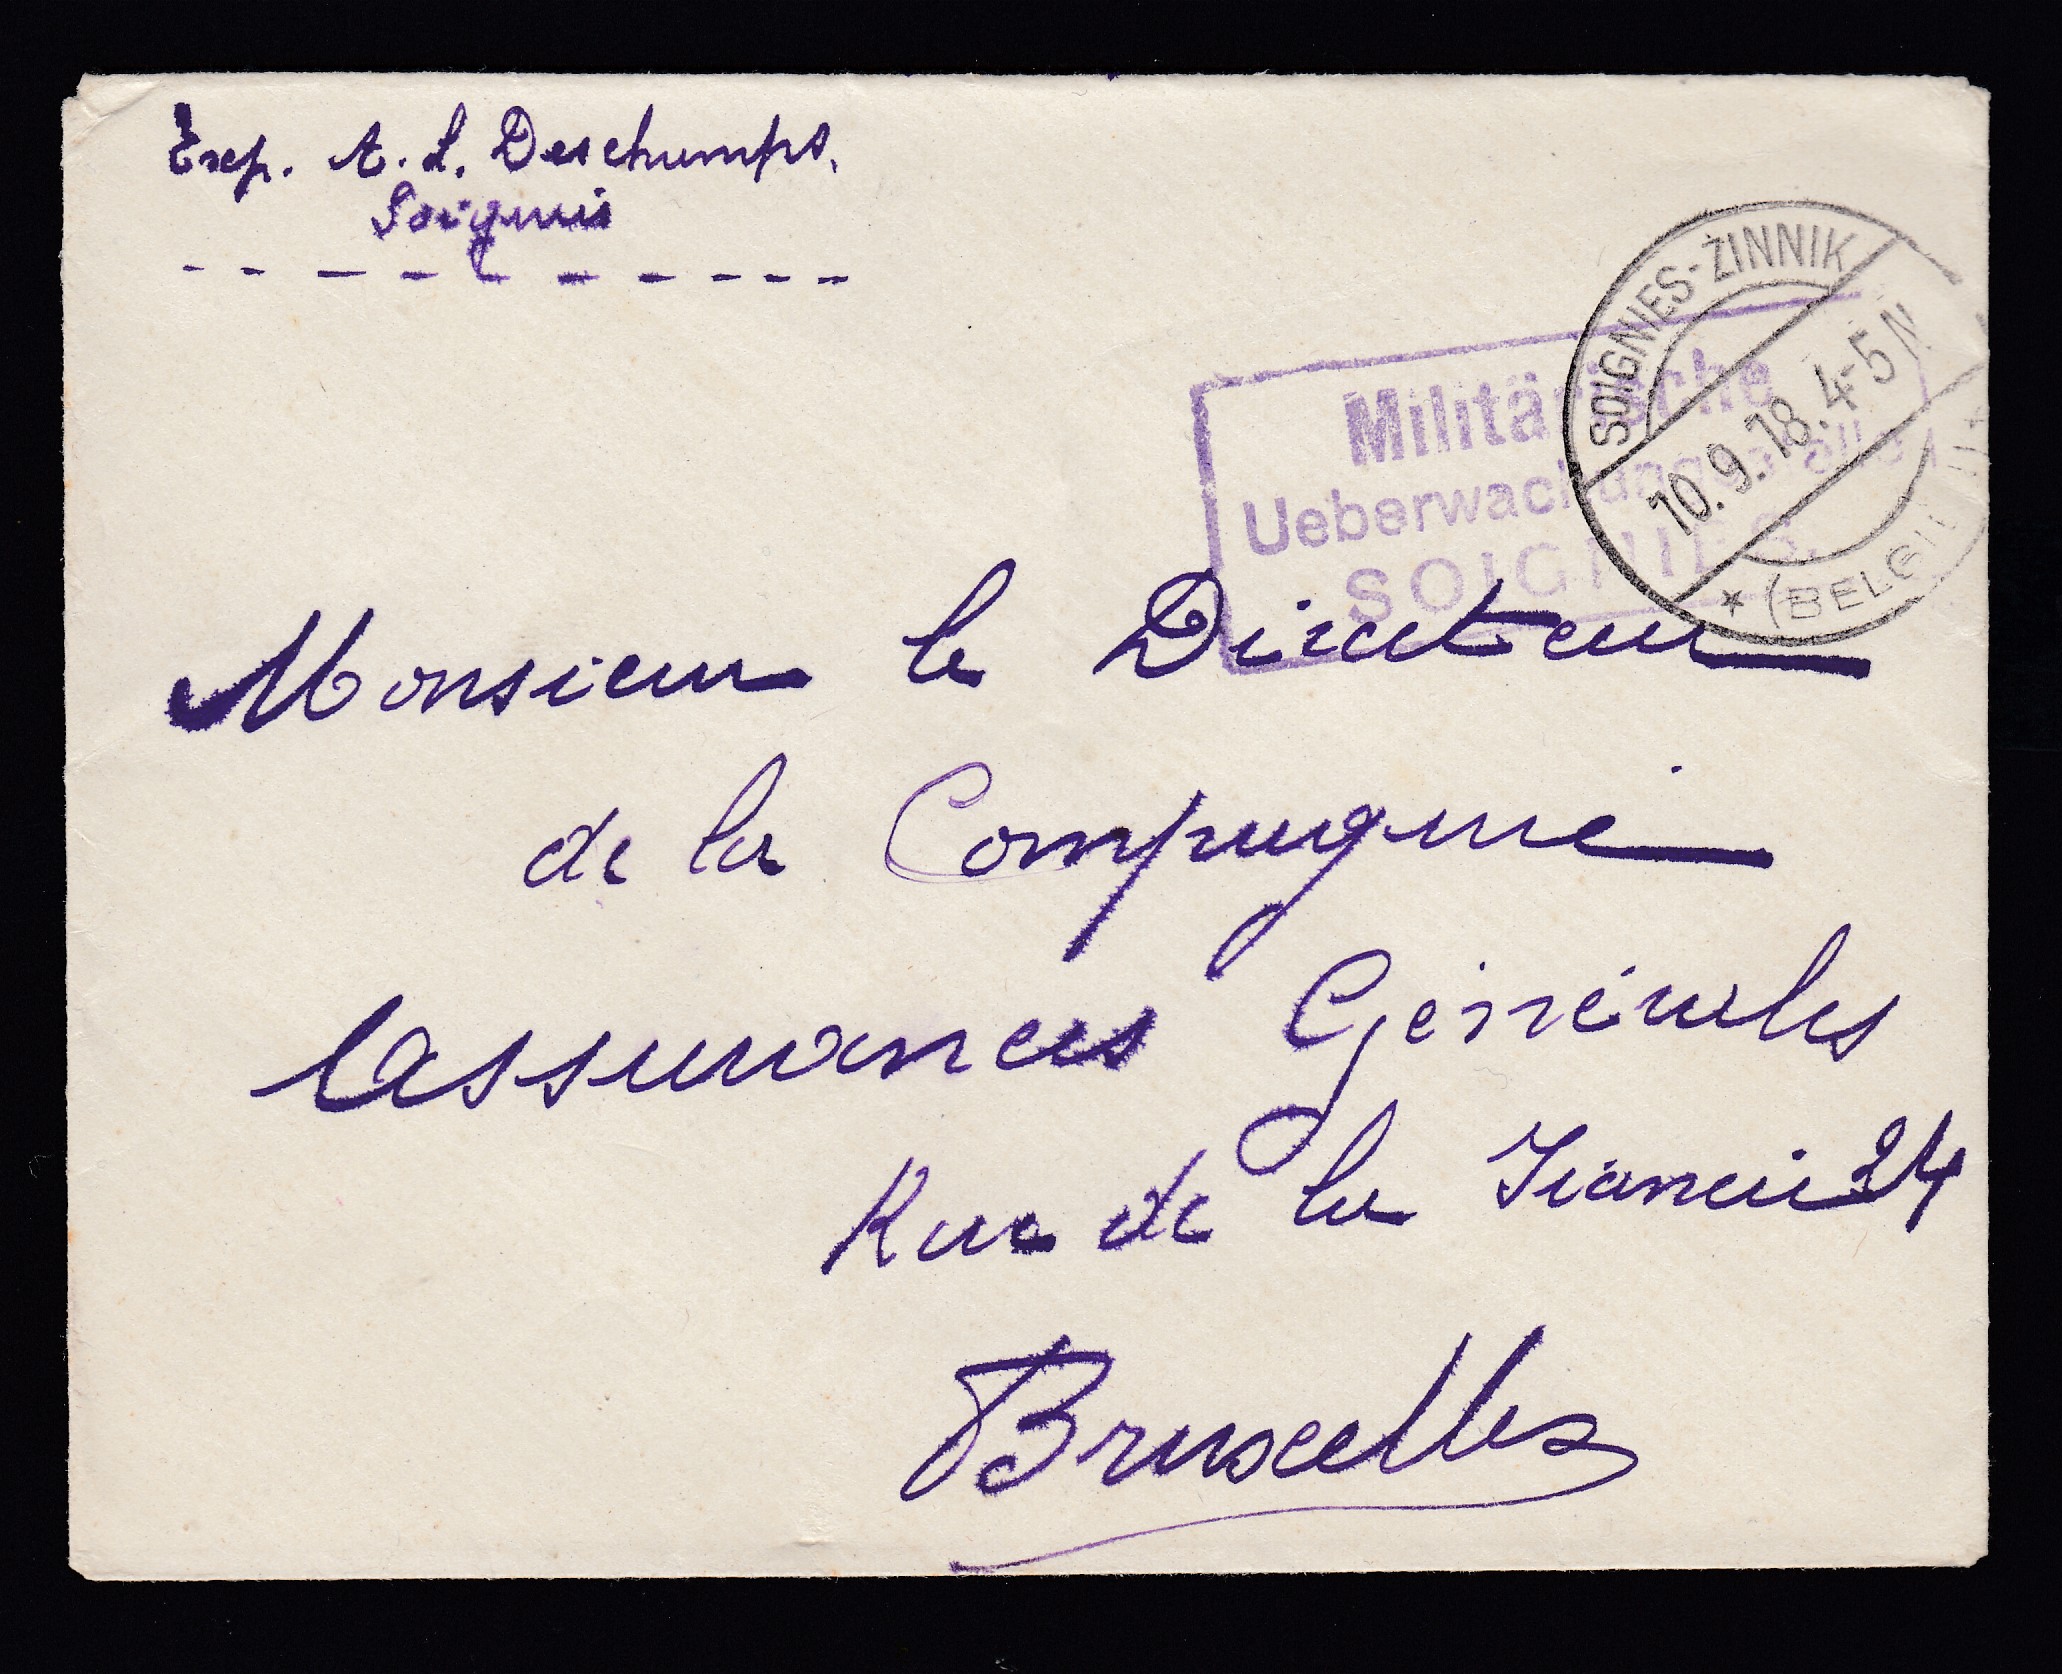 Exp. A. L. Deschamps.
Soignies
SOIGNIES-ZINNIK
10.9.18. 4-5 N
* (BELGI
Militärische
Ueberwachungsstelle
SOIGNIES.
Monsieur le Directeur
de la Compagnie
Assurances Générales
Rue de la Fiancée 24
Bruxelles